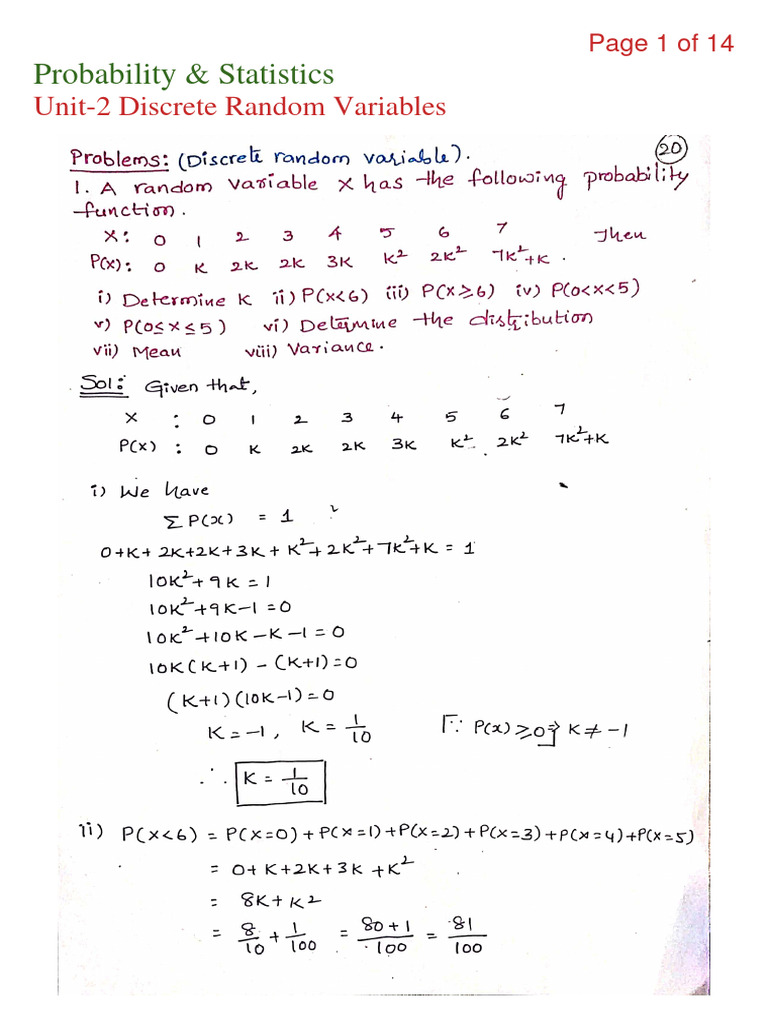 Page 1 of 14
Probability & Statistics
Unit-2 Discrete Random Variables
20
Problems: (Discrete random variable).
1. A random variable X has the following probability
function.
X: 0 1 2 3 4 5 6 7 Then
P(x): 0 K 2K 2K 3K K² 2K² 7K²+K .
i) Determine K ii) P(X<6) iii) P(X≥6) iv) P(0<X<5)
v) P(0≤X≤5) vi) Determine the distribution
vii) Mean viii) Variance.
Sol: Given that,
X : 0 1 2 3 4 5 6 7
P(X) : 0 K 2K 2K 3K K² 2K² 7K²+K
i) We have
Σ P(x) = 1
0+K+2K+2K+3K+K²+2K²+7K²+K = 1
10K²+9K=1
10K²+9K-1=0
10K²+10K-K-1=0
10K(K+1)-(K+1)=0
(K+1)(10K-1)=0
K=-1, K=1/10 [∵ P(x)≥0] ⇒ K≠-1
∴ K=1/10
ii) P(X<6) = P(X=0)+P(X=1)+P(X=2)+P(X=3)+P(X=4)+P(X=5)
= 0+K+2K+3K+K²
= 8K+K²
= 8/10 + 1/100 = 80+1/100 = 81/100